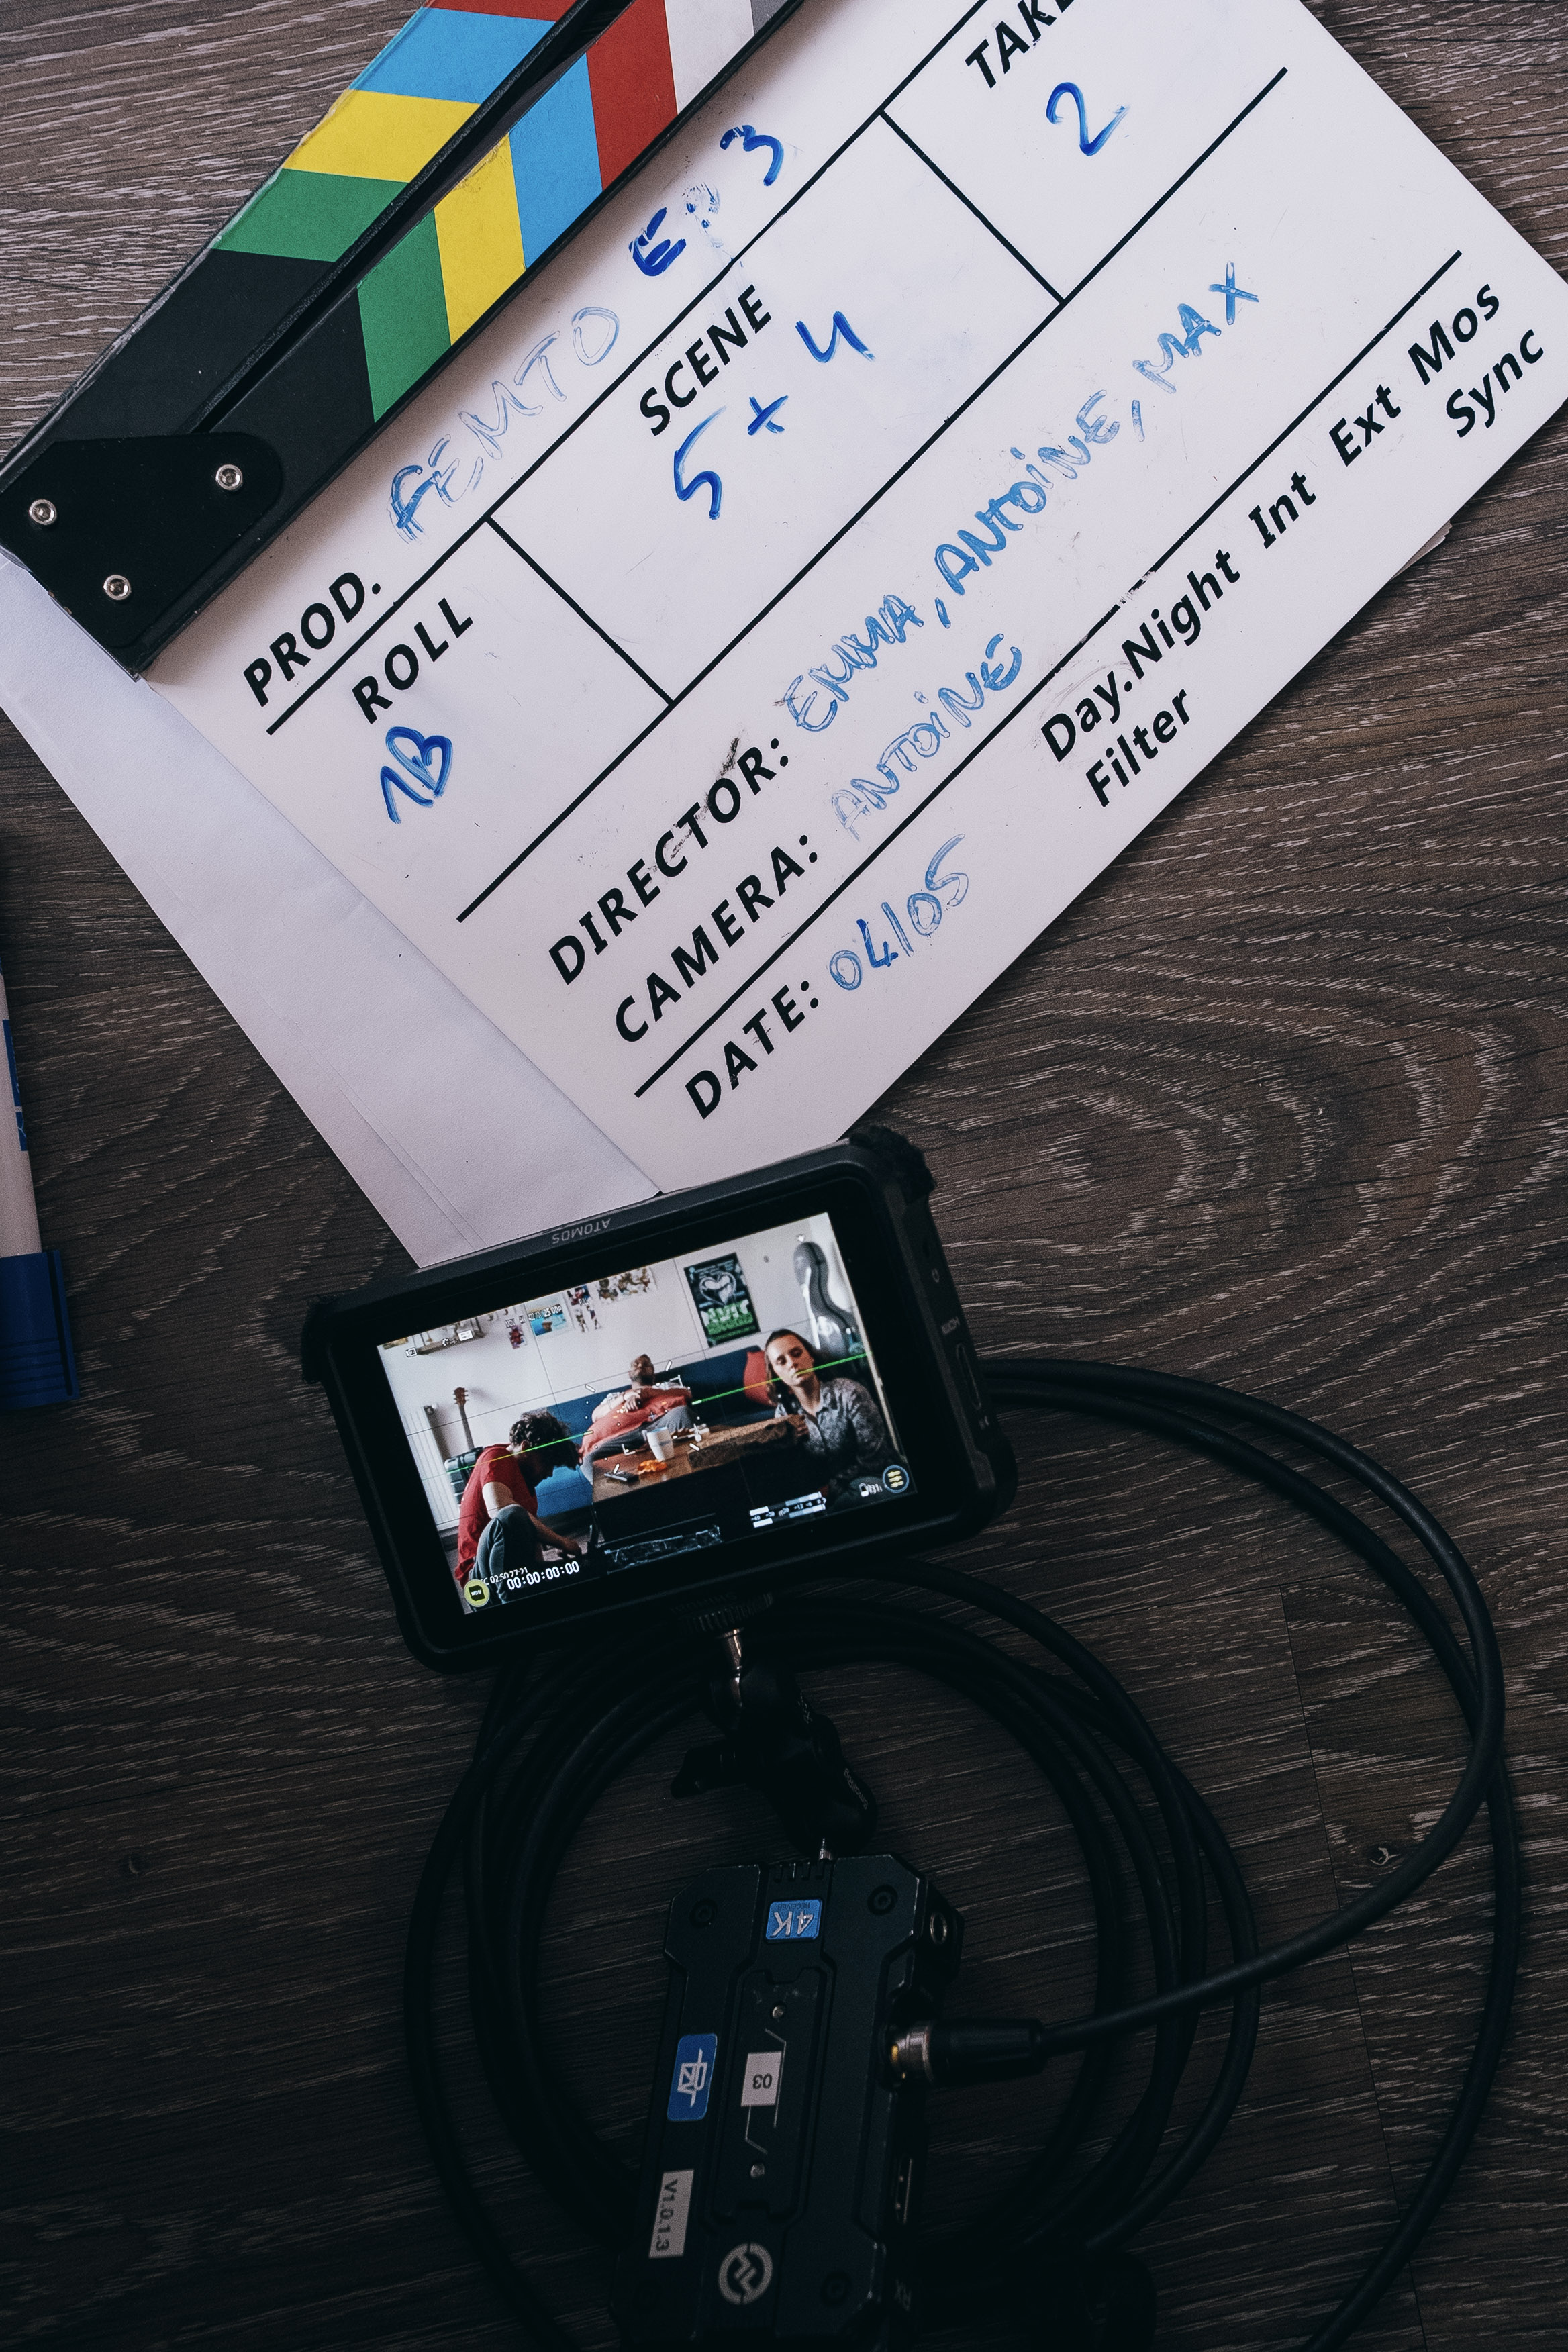 PROD. FEMTO EP 3
ROLL
1B
SCENE
5 + 4
TAKE
2
DIRECTOR: EMMA, ANTOINE, MAX
CAMERA: ANTOINE
DATE: 04/05
Day.Night Int Ext Mos
Filter
Sync
ATOMOS
00:00:00:00
4K
03
V1.0.1.3